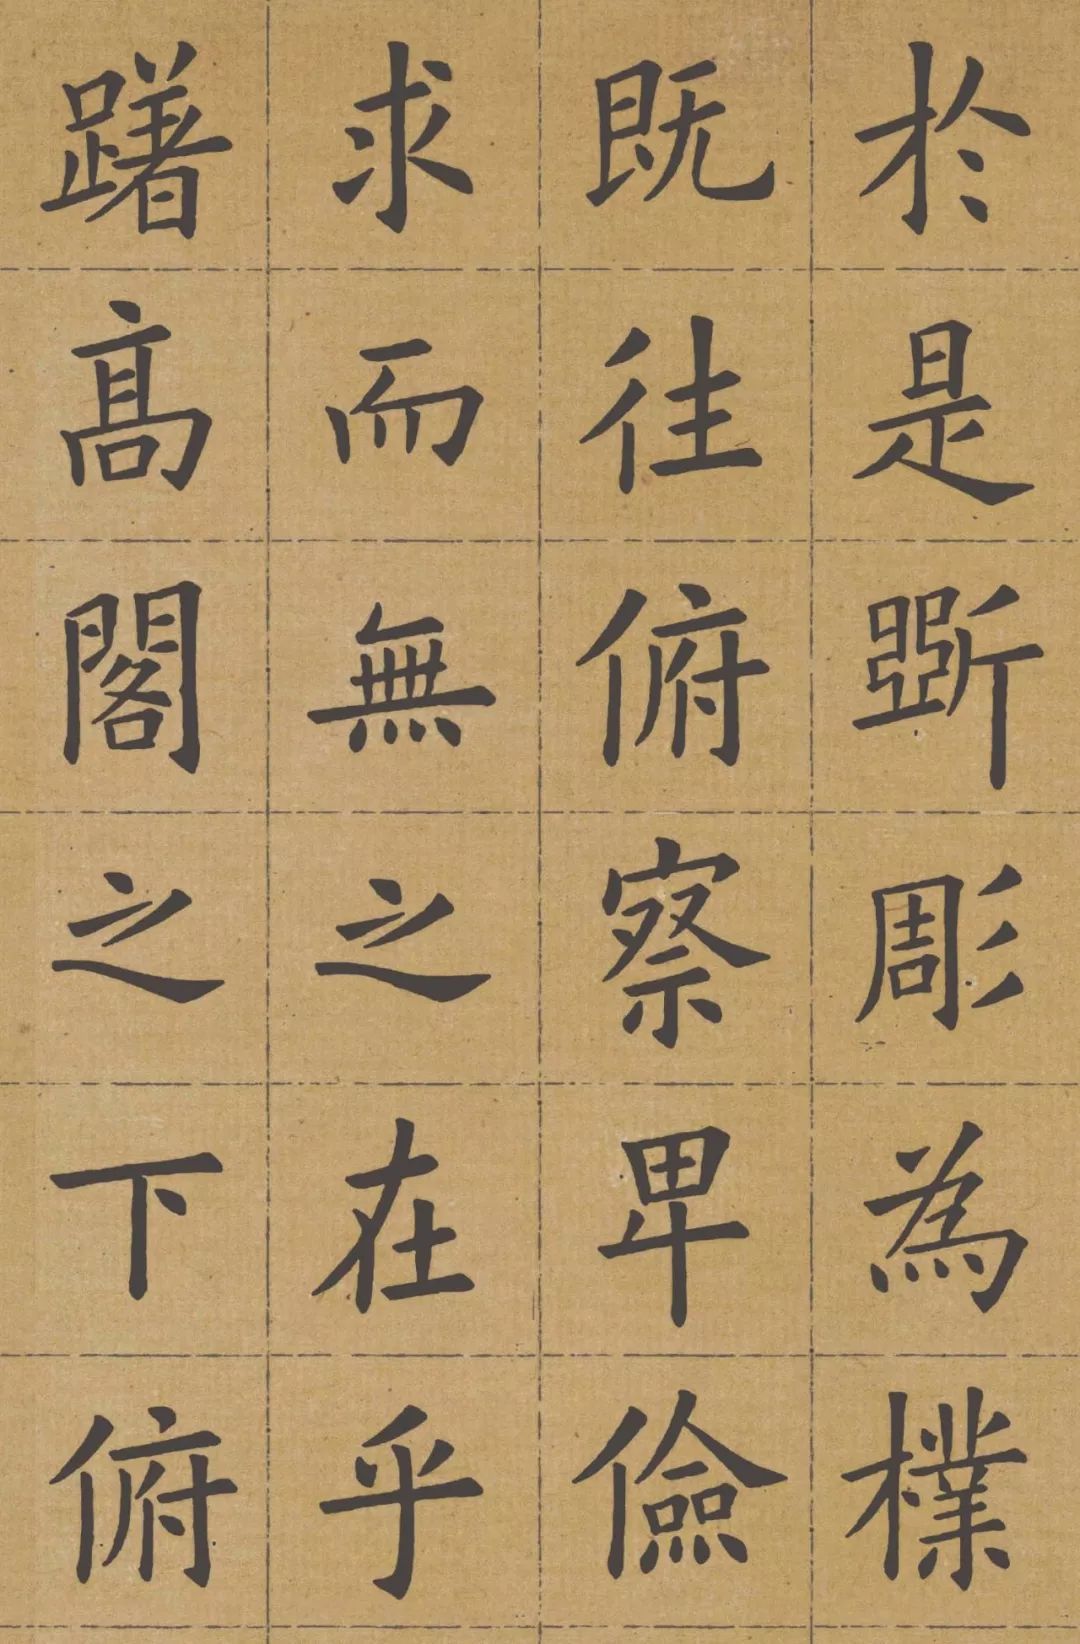 於是斵彫為樸
既往俯察卑儉
求而無之在乎
躇高閣之下俯